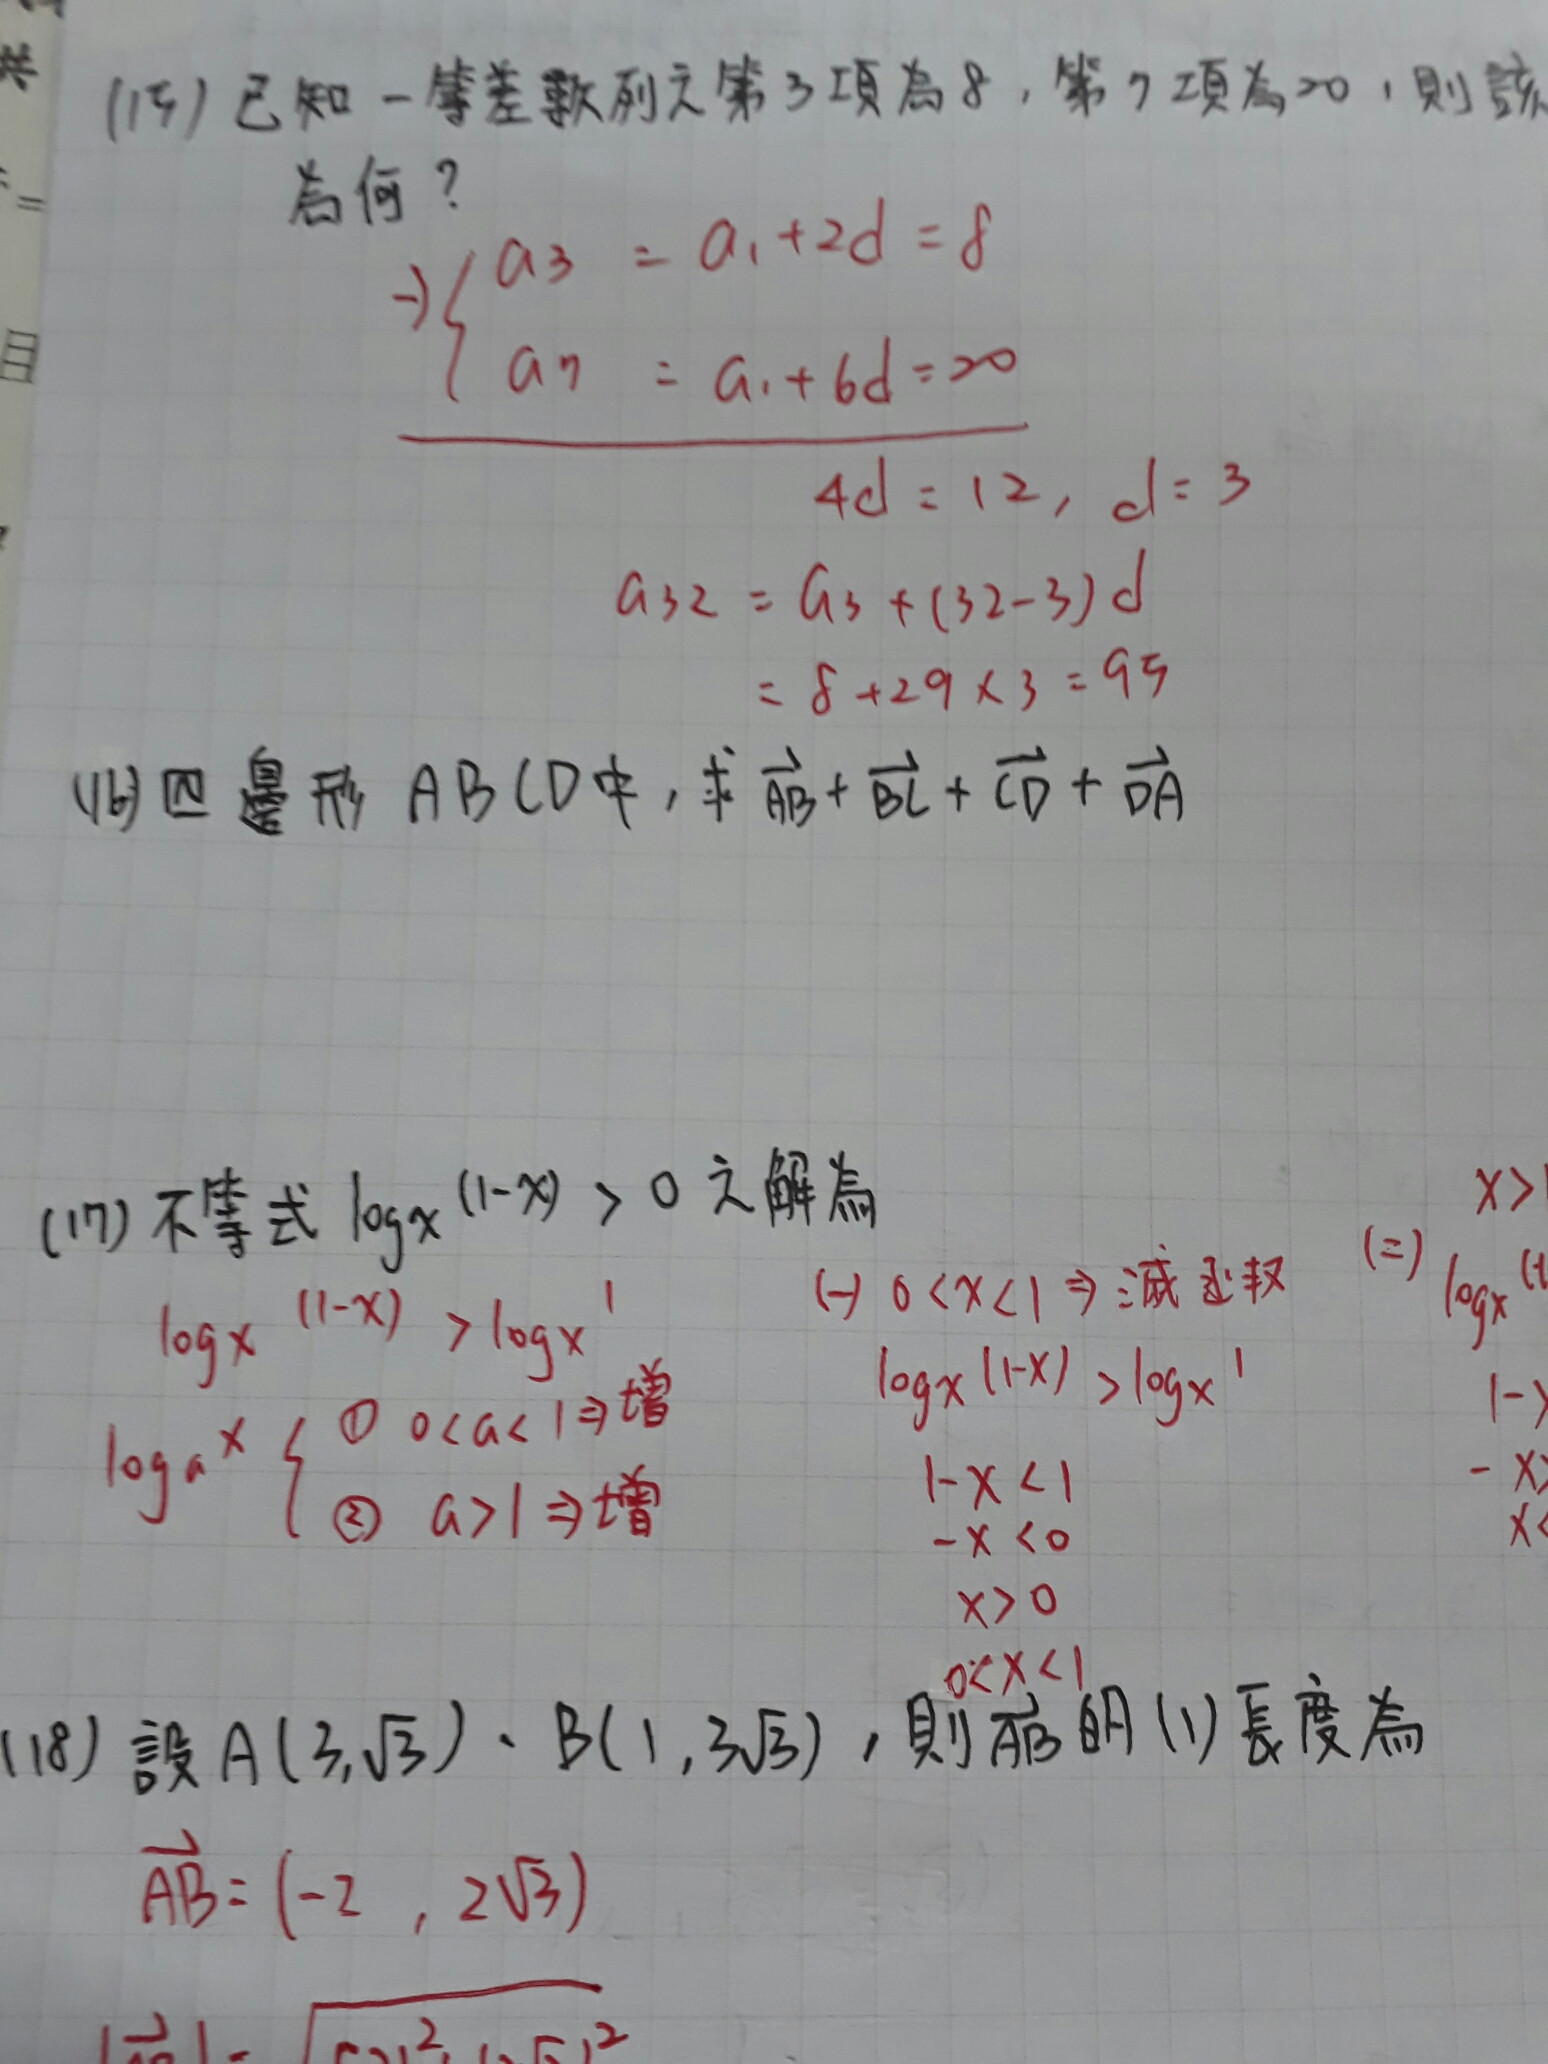 共
=
目
(15) 已知一等差數列之第3項為8，第7項為20，則該
為何？
→{ a3 = a1+2d=8
a7 = a1+6d=20
4d=12, d=3
a32 = a3+(32-3)d
= 8+29×3=95
(16) 四邊形ABCD中，求 AB + BC + CD + DA
(17) 不等式 logx (1-x) > 0 之解為
logx (1-x) > logx 1
loga x { ① 0<a<1 ⇒ 增
② a>1 ⇒ 增
(一) 0<x<1 ⇒ 減函數
logx (1-x) > logx 1
1-x<1
-x<0
x>0
0<x<1
x>1
(二) logx (1
1-x
-x>
x<
(18) 設A(3,√3)、B(1,3√3)，則AB的(1)長度為
AB=(-2, 2√3)